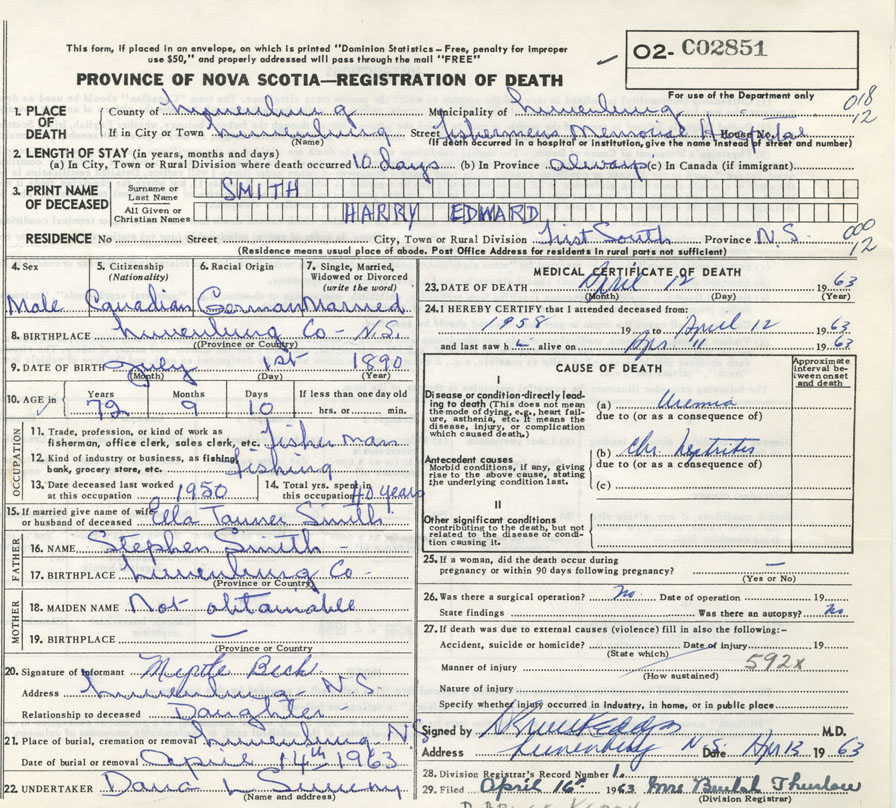 This form, if placed in an envelope, on which is printed "Dominion Statistics – Free, penalty for improper
use $50," and properly addressed will pass through the mail "FREE"
O2- C02851
PROVINCE OF NOVA SCOTIA—REGISTRATION OF DEATH
For use of the Department only
018
12
1. PLACE OF DEATH
County of Lunenburg Municipality of Lunenburg
If in City or Town Lunenburg Street Fishermens Memorial Hospital House No.
(Name) (If death occurred in a hospital or institution, give the name instead of street and number)
2. LENGTH OF STAY (in years, months and days)
(a) In City, Town or Rural Division where death occurred 10 days (b) In Province always (c) In Canada (if immigrant)
3. PRINT NAME OF DECEASED
Surname or Last Name SMITH
All Given or Christian Names HARRY EDWARD
000
12
RESIDENCE No. Street City, Town or Rural Division First South Province N.S.
(Residence means usual place of abode. Post Office Address for residents in rural parts not sufficient)
4. Sex 5. Citizenship (Nationality) 6. Racial Origin 7. Single, Married, Widowed or Divorced (write the word)
Male Canadian German Married
8. BIRTHPLACE Lunenburg Co- N.S.
(Province or Country)
9. DATE OF BIRTH July 1st 1890
(Month) (Day) (Year)
10. AGE in Years Months Days If less than one day old
72 9 10 hrs. or min.
OCCUPATION
11. Trade, profession, or kind of work as
fisherman, office clerk, sales clerk, etc. fisherman
12. Kind of industry or business, as fishing,
bank, grocery store, etc. fishing
13. Date deceased last worked
at this occupation 1950
14. Total yrs. spent in
this occupation 40 years
15. If married give name of wife
or husband of deceased Ella Tanner Smith
FATHER
16. NAME Stephen Smith -
17. BIRTHPLACE Lunenburg Co-
(Province or Country)
MOTHER
18. MAIDEN NAME Not obtainable
19. BIRTHPLACE —
(Province or Country)
20. Signature of informant Myrtle Beck
Address Lunenburg - N.S
Relationship to deceased Daughter -
21. Place of burial, cremation or removal Lunenburg N.S
Date of burial or removal April 14th 1963
22. UNDERTAKER Dana L Sweeny
(Name and address)
MEDICAL CERTIFICATE OF DEATH
23. DATE OF DEATH April 12 1963
(Month) (Day) (Year)
24. I HEREBY CERTIFY that I attended deceased from:
1958 19 to April 12 1963
and last saw h alive on Apr. 11 1963
CAUSE OF DEATH
Approximate interval between onset and death
I
Disease or condition directly leading
to death (This does not mean
the mode of dying, e.g., heart failure,
asthenia, etc. It means the
disease, injury, or complication
which caused death.)
(a) Uremia
due to (or as a consequence of)
Antecedent causes
Morbid conditions, if any, giving
rise to the above cause, stating
the underlying condition last.
(b) Chr. Nephritis
due to (or as a consequence of)
(c)
II
Other significant conditions
contributing to the death, but not
related to the disease or condition
causing it.
25. If a woman, did the death occur during
pregnancy or within 90 days following pregnancy? —
(Yes or No)
26. Was there a surgical operation? no Date of operation 19
State findings Was there an autopsy? no
27. If death was due to external causes (violence) fill in also the following:–
Accident, suicide or homicide? Date of injury 19
(State which)
592x
Manner of injury
(How sustained)
Nature of injury
Specify whether injury occurred in industry, in home, or in public place
Signed by M.D.
Address Lunenburg N.S. Date Apr 13 1963
28. Division Registrar's Record Number 1.
29. Filed April 16th 1963 Mrs Beulah Thurlow
(Division Registrar)